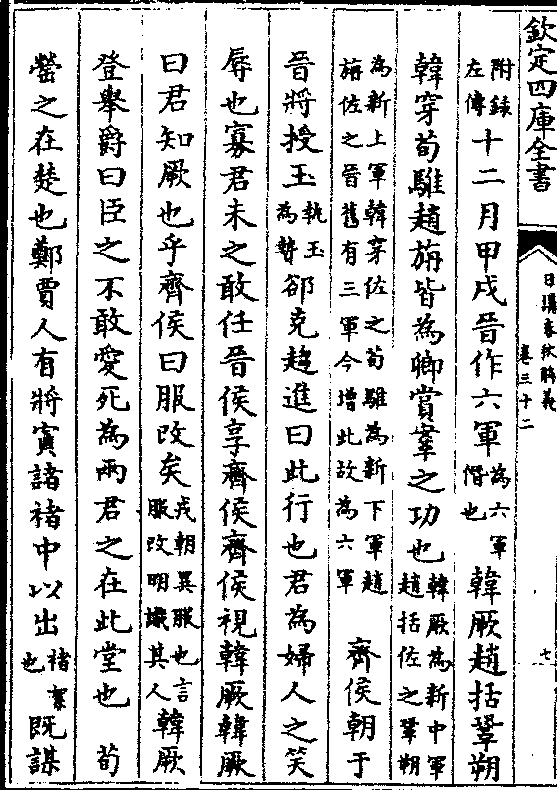 欽定四庫全書
日講春秋解義
卷三十二
七
附錄左傳十二月甲戌晉作六軍為六軍僭也韓厥趙括鞏朔
韓穿荀騅趙旃皆為卿賞鞌之功也韓厥為新中軍趙括佐之鞏朔
為新上軍韓穿佐之荀騅為新下軍趙旃佐之晉舊有三軍今增此故為六軍齊侯朝于
晉將授玉執玉為贄郤克趨進曰此行也君為婦人之笑
辱也寡君未之敢任晉侯享齊侯齊侯視韓厥韓厥
曰君知厥也乎齊侯曰服改矣戎朝異服也言服改明識其人韓厥
登舉爵曰臣之不敢愛死為兩君之在此堂也荀
罃之在楚也鄭賈人有將寘諸褚中以出褚絮也既謀